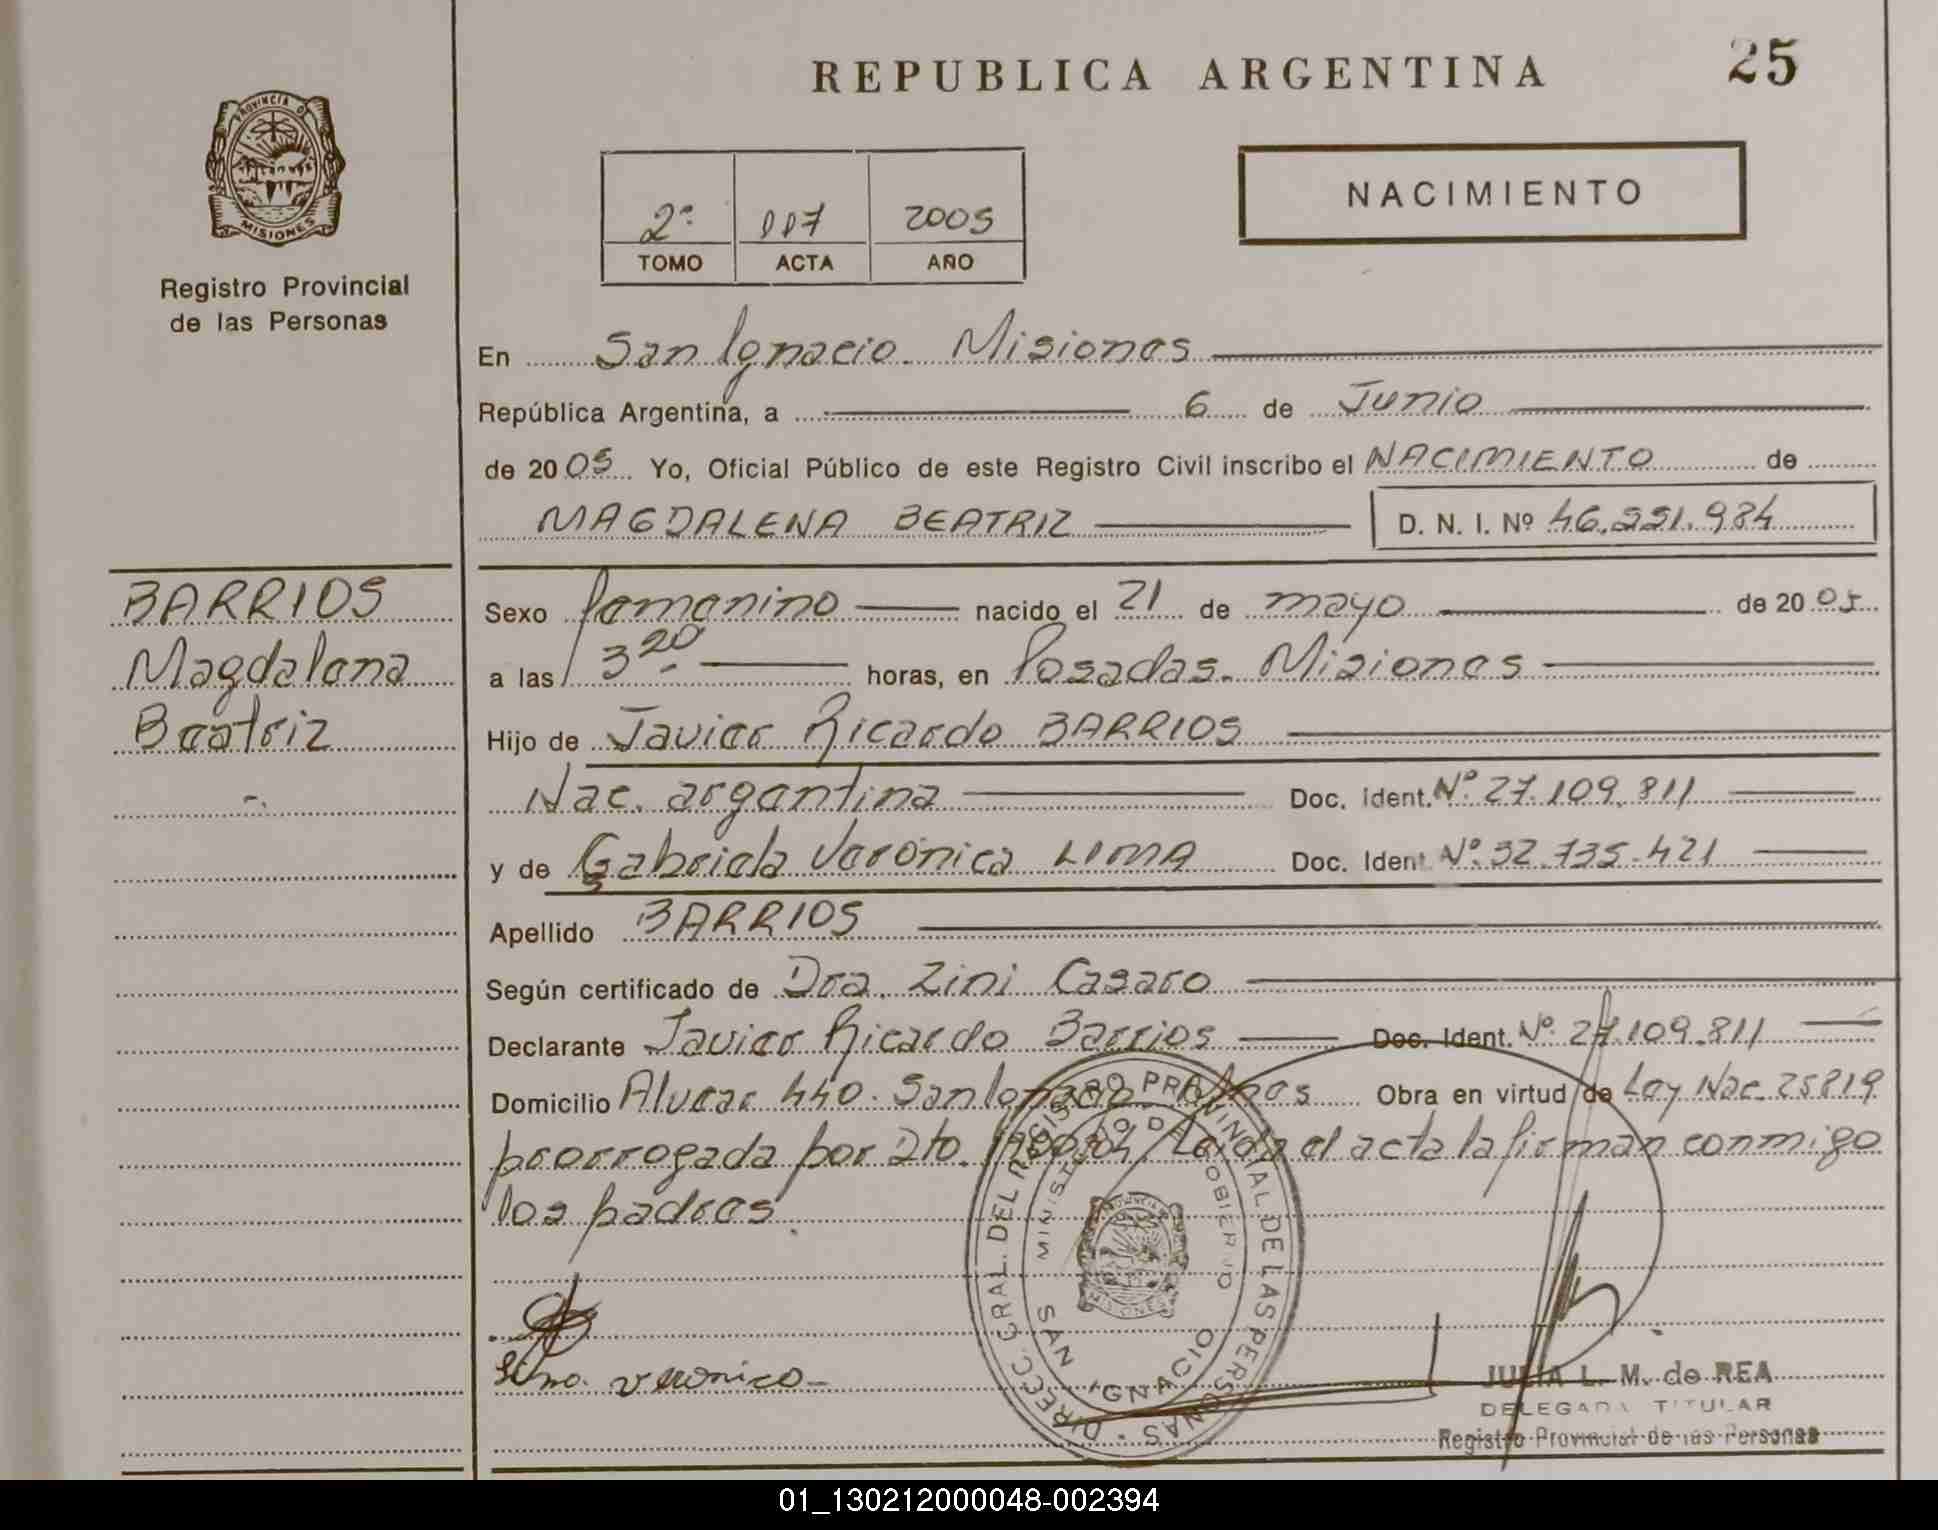 REPUBLICA ARGENTINA
25
PROVINCIA D
MISIONES
Registro Provincial
de las Personas
NACIMIENTO
2º 117 2005
TOMO ACTA AÑO
En San Ignacio. Misiones
República Argentina, a 6 de Junio
de 2005 Yo, Oficial Público de este Registro Civil inscribo el NACIMIENTO de
MAGDALENA BEATRIZ D. N. I. Nº 46.221.984
BARRIOS
Magdalena
Beatriz
Sexo femenino nacido el 21 de mayo de 2005
a las 3 20 horas, en Posadas. Misiones
Hijo de Javier Ricardo BARRIOS
Nac. argentina Doc. Ident. Nº 27.109.811
y de Gabriela Verónica LIMA Doc. Ident Nº 32.735.421
Apellido BARRIOS
Según certificado de Dra. Zini Casaro
Declarante Javier Ricardo Barrios Doc. Ident. Nº 27.109.811
Domicilio Alvear 440. San Ignacio. Mnes Obra en virtud de Ley Nac. 25819
prorrogada por Dto. Leida el acta la firman conmigo
los padres.
DIRECC. GRAL. DEL REGISTRO PROVINCIAL DE LAS PERSONAS
MINISTERIO DE GOBIERNO
SAN IGNACIO
MISIONES
Lima veronica
JULIA L. M. de REA
DELEGADA TITULAR
Registro Provincial de las Personas
01_130212000048-002394